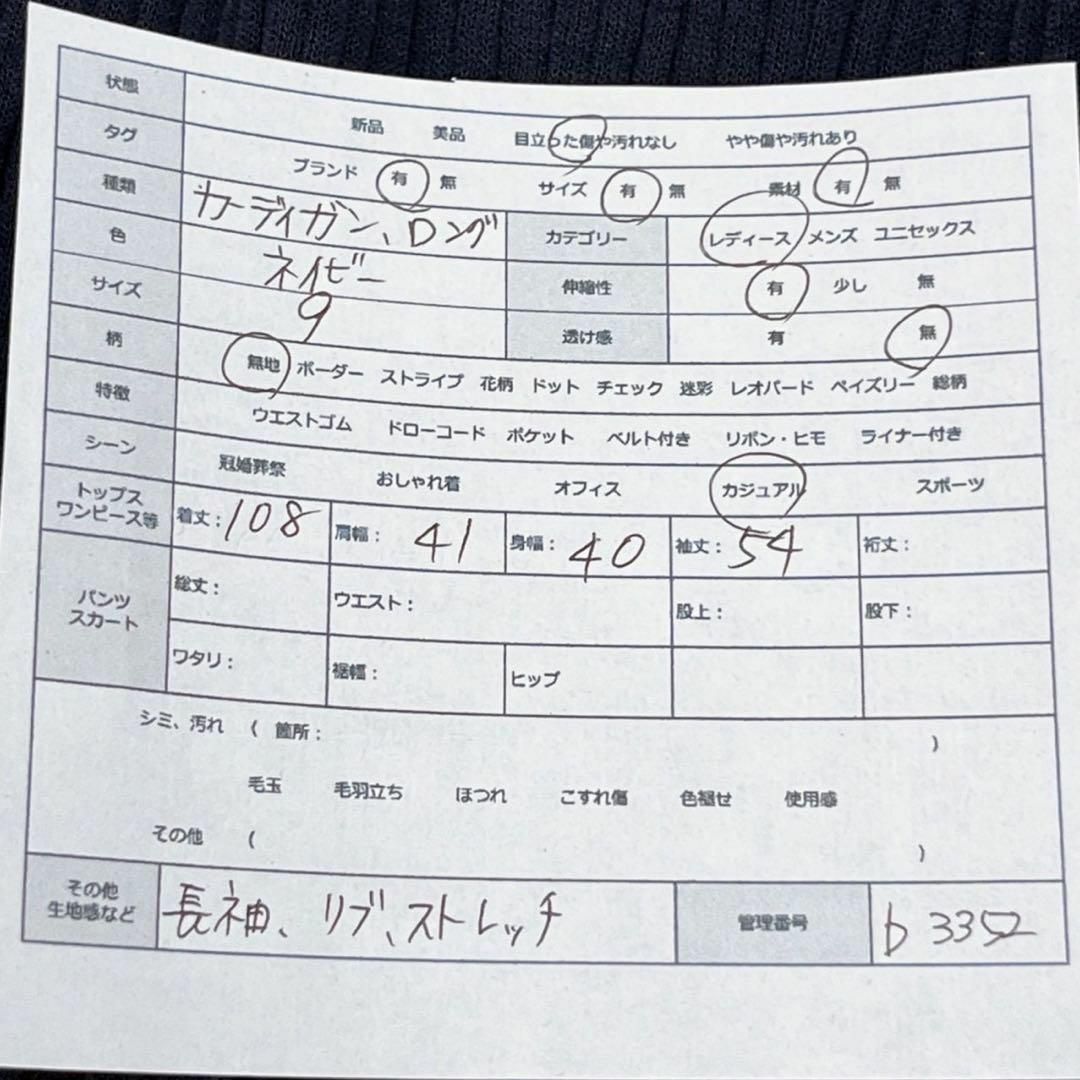 状態
新品 美品 目立った傷や汚れなし やや傷や汚れあり
タグ
ブランド 有 無 サイズ 有 無 素材 有 無
種類 カーディガン、ロング カテゴリー レディース メンズ ユニセックス
色 ネイビー 伸縮性 有 少し 無
サイズ 9 透け感 有 無
柄 無地 ボーダー ストライプ 花柄 ドット チェック 迷彩 レオパード ペイズリー 総柄
特徴 ウエストゴム ドローコード ポケット ベルト付き リボン・ヒモ ライナー付き
シーン 冠婚葬祭 おしゃれ着 オフィス カジュアル スポーツ
トップス
ワンピース等 着丈:108 肩幅: 41 身幅: 40 袖丈:54 裄丈:
パンツ
スカート
総丈: ウエスト: 股上: 股下:
ワタリ: 裾幅: ヒップ
シミ、汚れ ( 箇所: )
毛玉 毛羽立ち ほつれ こすれ傷 色褪せ 使用感
その他 ( )
その他
生地感など 長袖、リブ、ストレッチ 管理番号